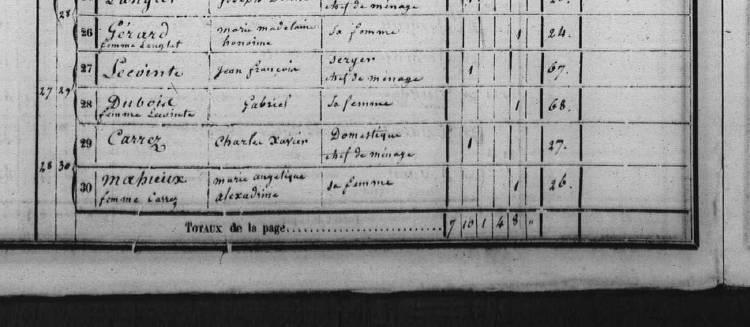 Joseph
chef de ménage
28
26 Gérard marie madelaine Sa femme 1 24.
femme Lenglet honorine
27 Lecointe Jean françois serger 1 67.
chef de ménage
27 29
28 Dubois Gabriel Sa femme 1 68.
femme Lecointe
29 Carrez Charles Xavier Domestique 1 27.
chef de ménage
28 30
30 mahieux marie angelique sa femme 1 26.
femme Carrez alexadrine
TOTAUX de la page 7 10 1 4 8 "